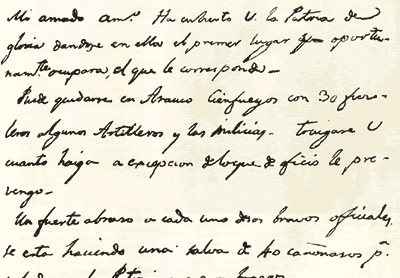 Mi amado am.º Ha cubierto V. la Patria de
gloria dandose en ella el primer lugar q.e oportu-
nam.te ocupara, el que le corresponde_
Puede quedarse en Arauco Cienfuegos con 30 fusi-
leros algunos Artilleros y las milicias. traigase V
cuanto haiga a excepcion de lo que de oficio le pre-
vengo_
Un fuerte abraso a cada uno de sos bravos oficiales,
se esta haciendo una salva de 40 cañonasos p.